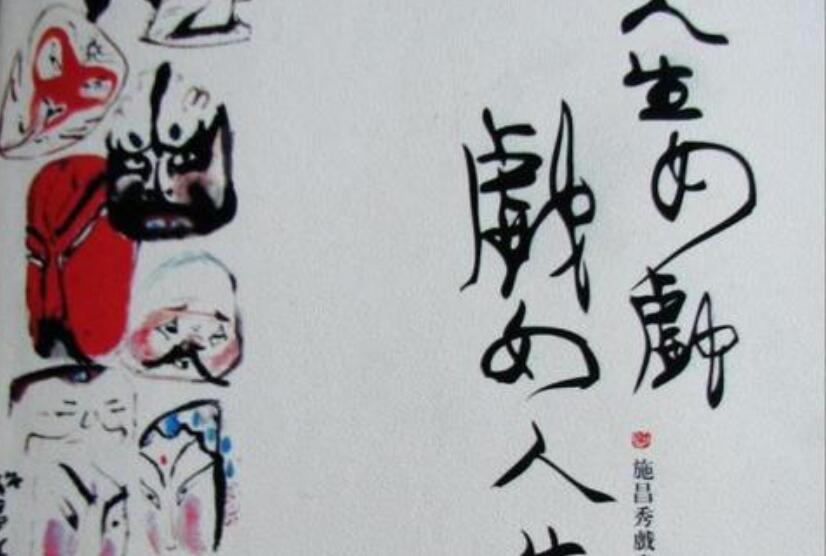 人生如戲
戲如人生
施昌秀戲